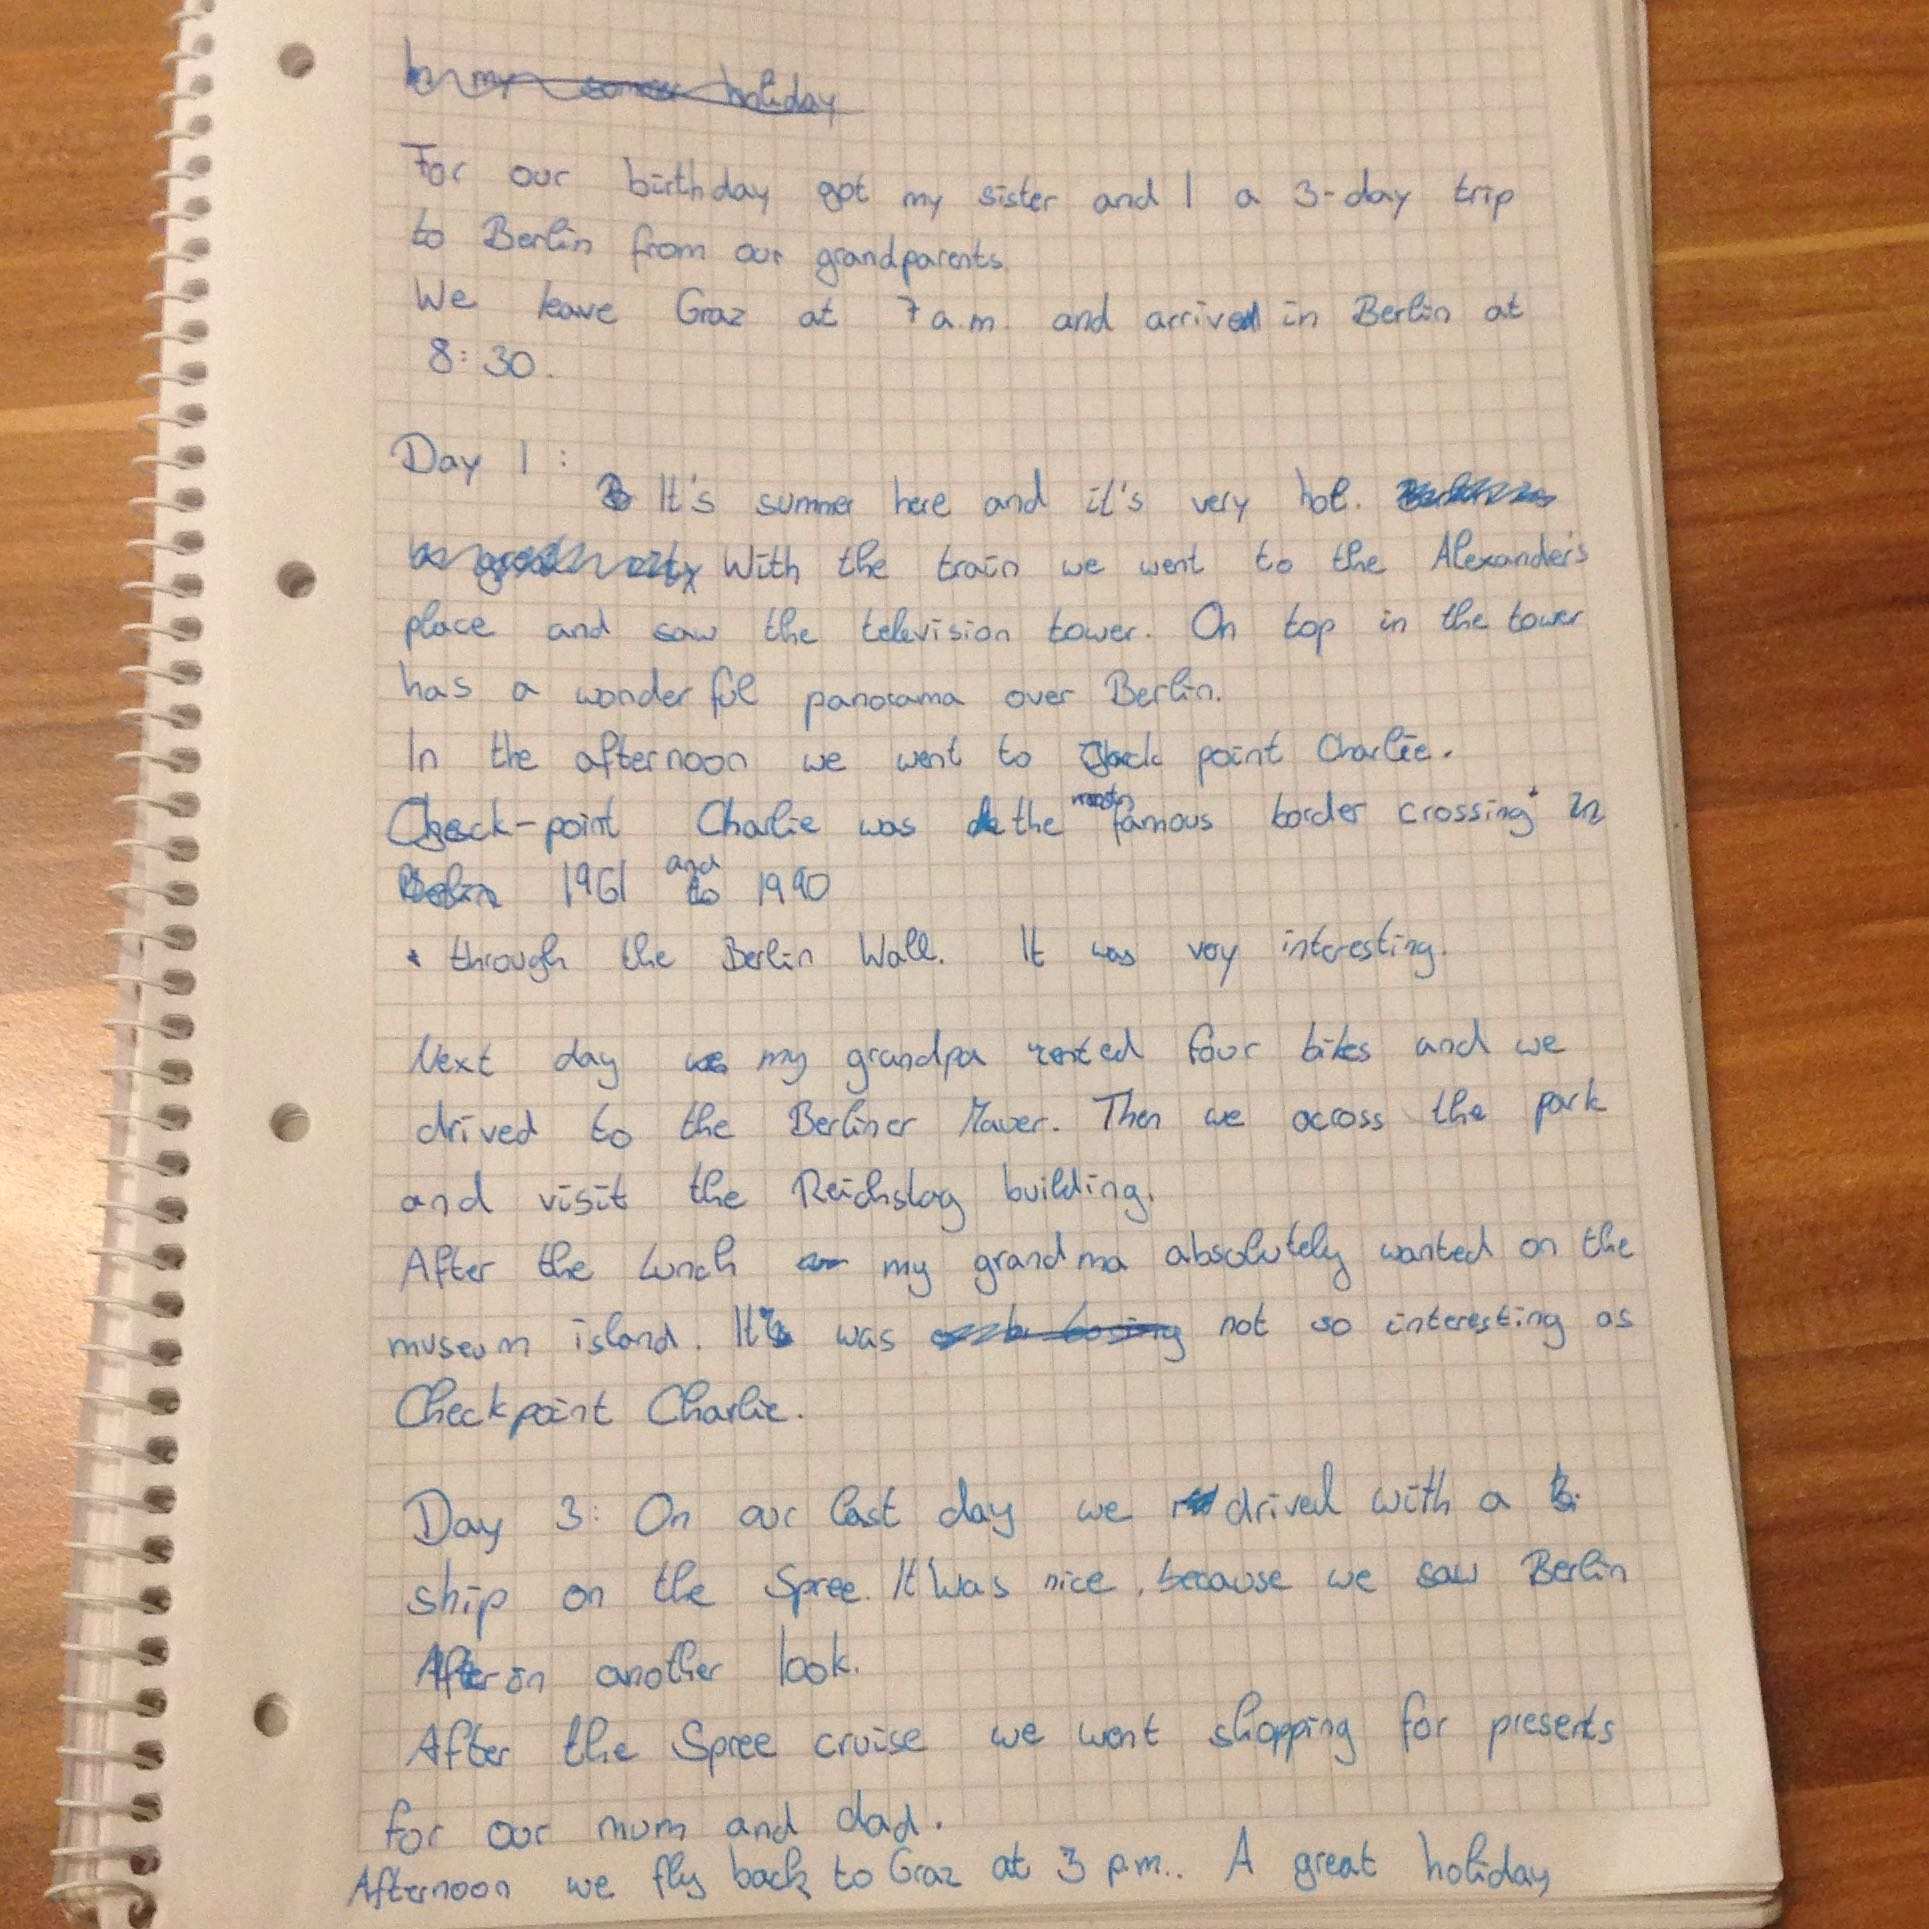 my holiday
For our birthday got my sister and I a 3-day trip
to Berlin from our grandparents.
We leave Graz at 7 a.m. and arrived in Berlin at
8:30.
Day 1:
It's summer here and it's very hot.
With the train we went to the Alexander's
place and saw the television tower. On top in the tower
has a wonderful panorama over Berlin.
In the afternoon we went to point Charlie.
Check-point Charlie was the famous border crossing in
Berlin 1961 and to 1990
through the Berlin Wall. It was very interesting.
Next day my grandpa rented four bikes and we
drived to the Berliner Mauer. Then we across the park
and visit the Reichstag building.
After the lunch my grandma absolutely wanted on the
museum island. It was not so interesting as
Checkpoint Charlie.
Day 3: On our last day we drived with a
ship on the Spree. It was nice, because we saw Berlin
in another look.
After the Spree cruise we went shopping for presents
for our mum and dad.
Afternoon we fly back to Graz at 3 p.m.. A great holiday